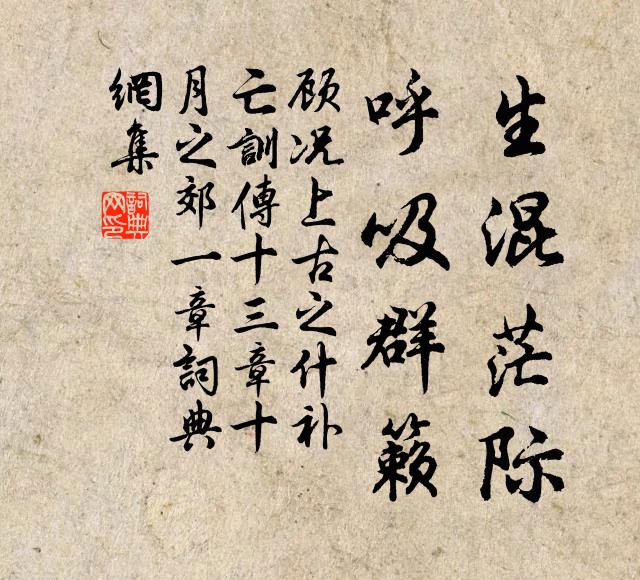 生混茫际
呼吸群籁
顾况上古之什补
亡訓傳十三章十
月之郊一章詞典
網集
詞典網印